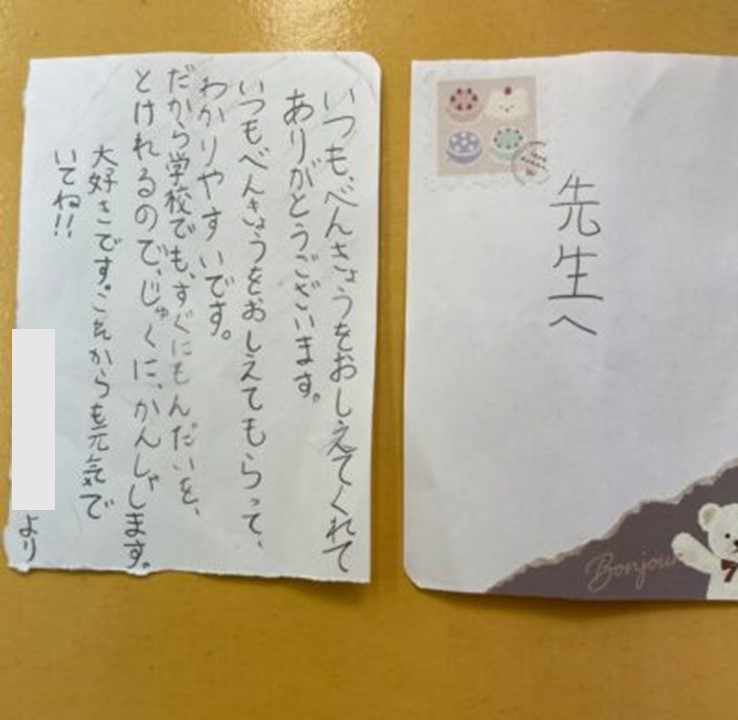 いつも、べんきょうをおしえてくれて
ありがとうございます。
いつもべんきょうをおしえてもらって、
わかりやすいです。
だから学校でも、すぐにもんだいを、
とけれるので、じゅくに、かんしゃします。
大好きです。これからも元気で
いてね!!
より
先生へ
Bonjour